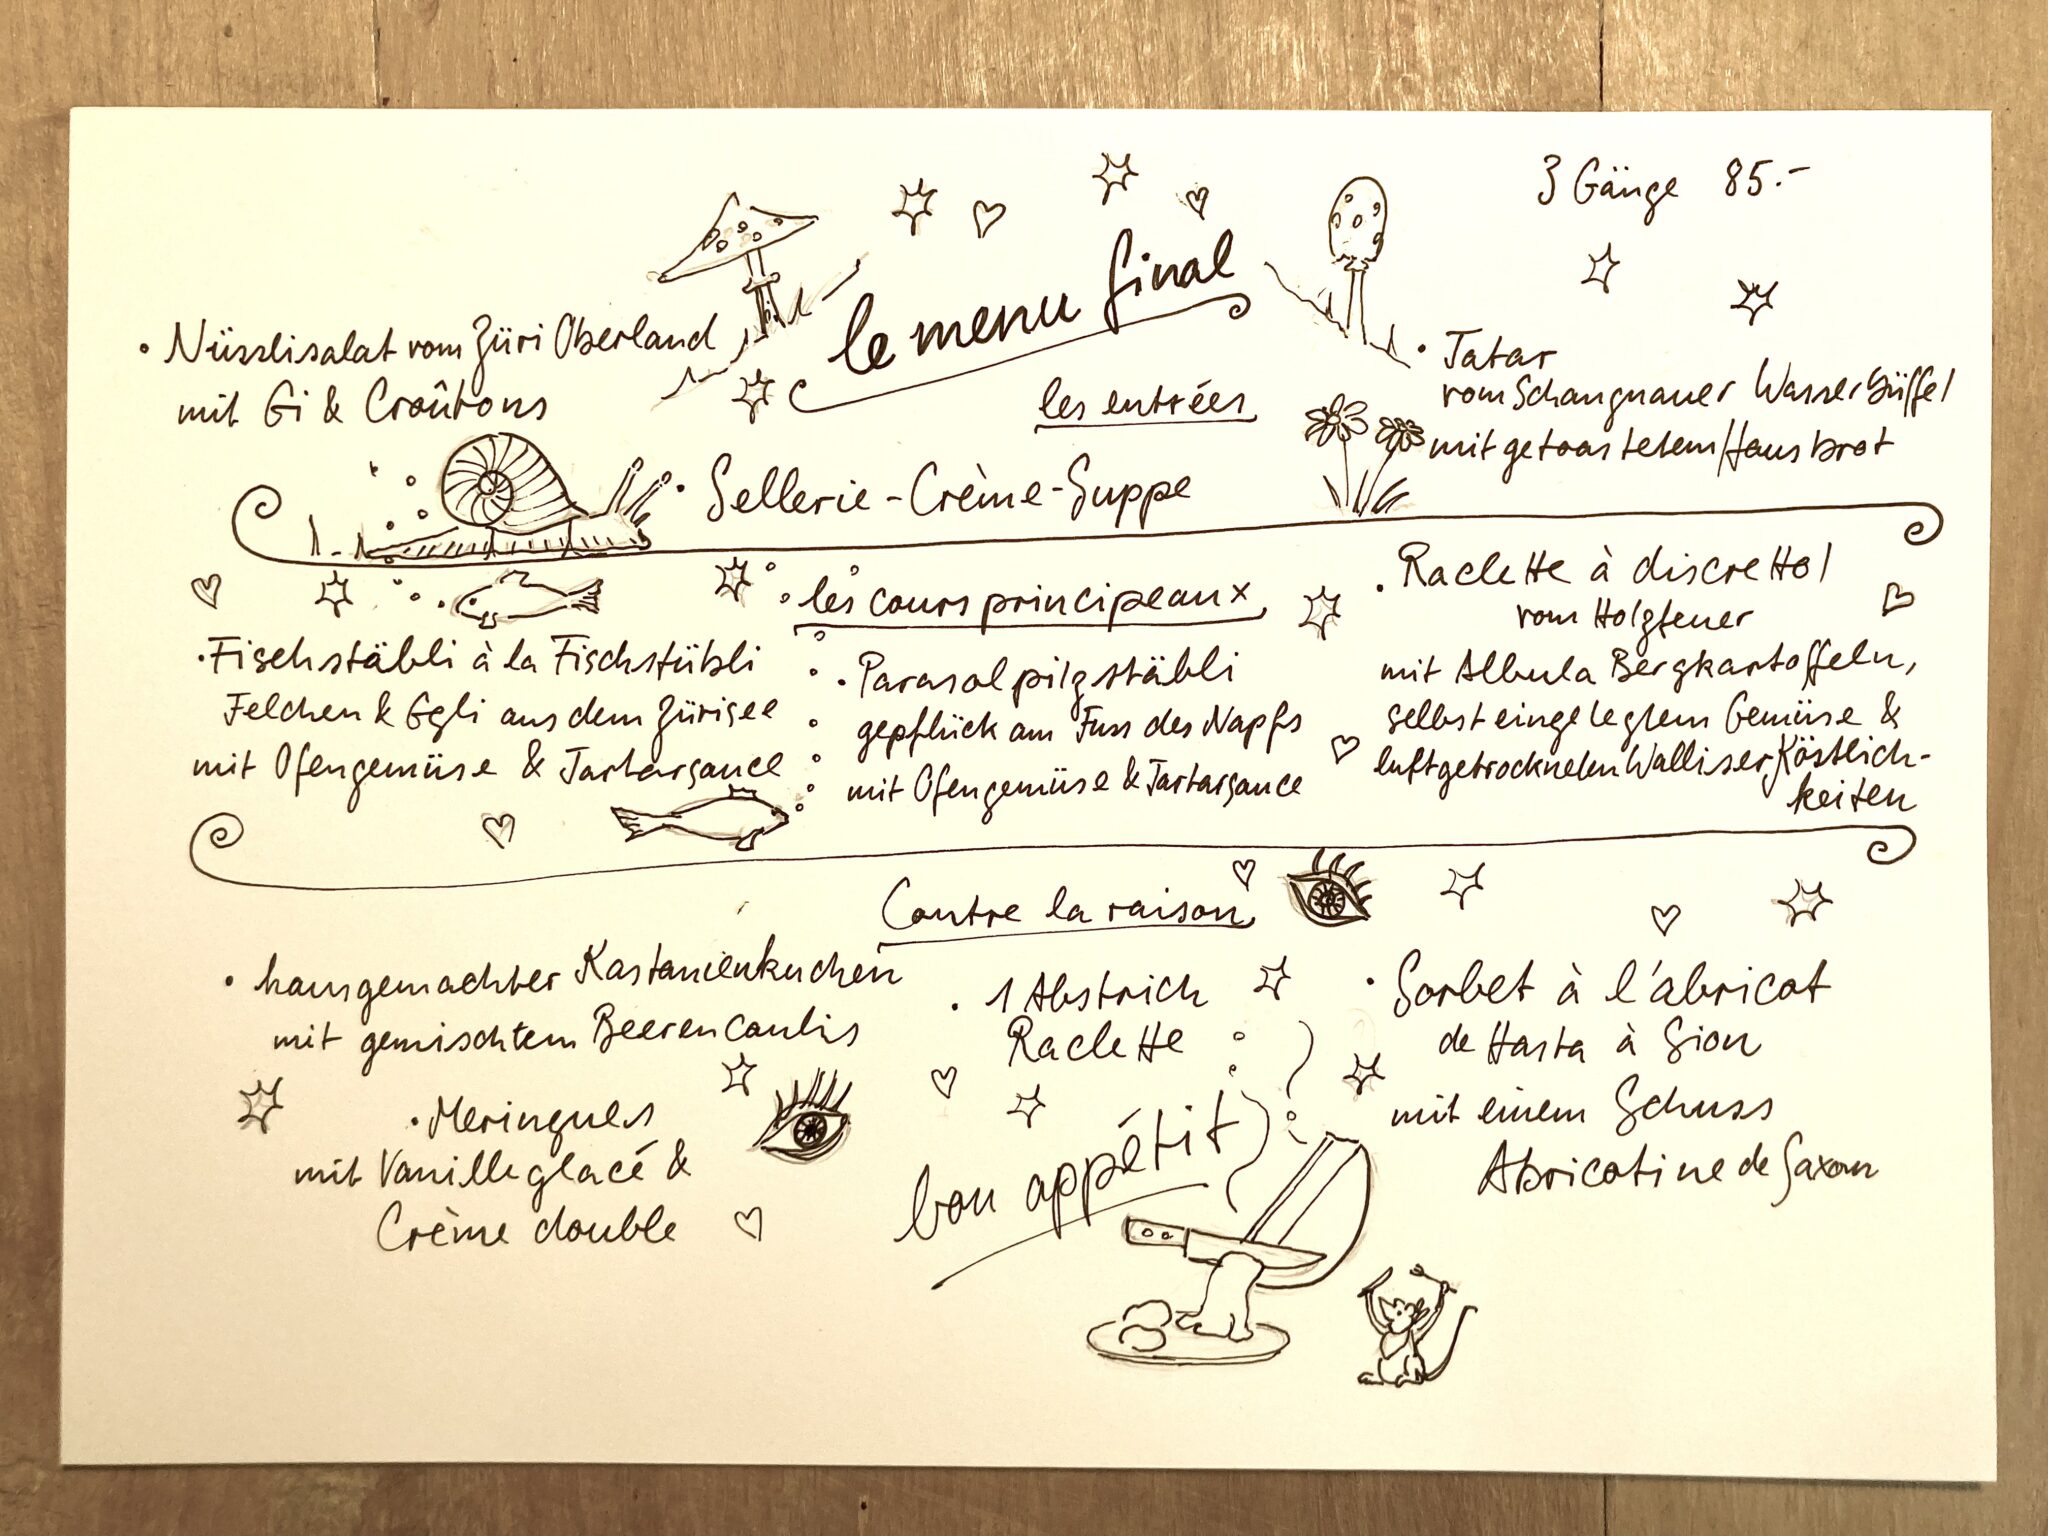 3 Gänge 85.-
le menu final
les entrées
• Nüsslisalat vom Züri Oberland
mit Gi & Croûtons
• Sellerie-Crème-Suppe
• Tatar
vom Schangnauer Wasserbüffel
mit getoastetem Hausbrot
les cours principeaux
• Fischstäbli à la Fischstübli
Felchen & Egli aus dem Zürisee
mit Ofengemüse & Tartarsauce
• Parasolpilzstäbli
gepflück am Fuss des Napfs
mit Ofengemüse & Tartarsauce
• Raclette à discrettol
vom Holzfeuer
mit Albula Bergkartoffeln,
selbst eingelegtem Gemüse &
luftgetrockneten Walliser Köstlich-
keiten
Contre la raison
• hausgemachter Kastanienkuchen
mit gemischtem Beerencoulis
• Meringues
mit Vanilleglacé &
Crème double
• 1 Abstrich
Raclette
• Sorbet à l'abricot
de Hasta à Sion
mit einem Schuss
Abricotine de Saxon
bon appétit